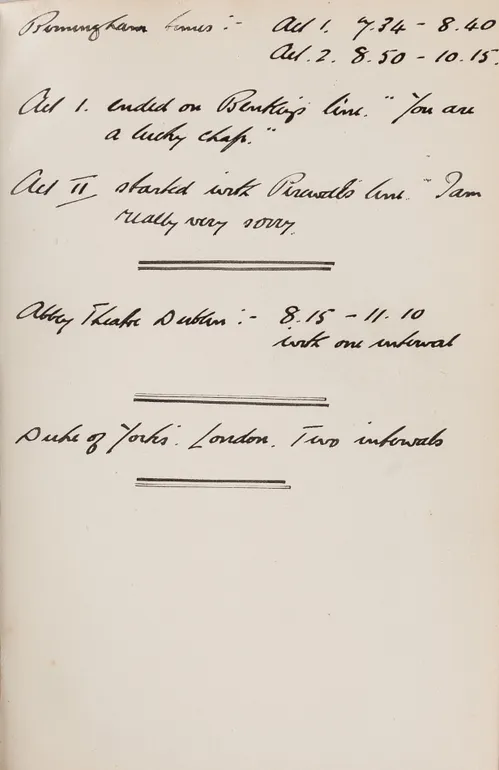 Birmingham times :- Act 1. 7.34 - 8.40
Act. 2. 8.50 - 10.15.
Act 1. ended on Bentley's line. "You are
a lucky chap."
Act II started with Percival's line. "I am
really very sorry.
Abbey Theatre Dublin :- 8.15 - 11.10
with one interval
Duke of York's. London. Two intervals